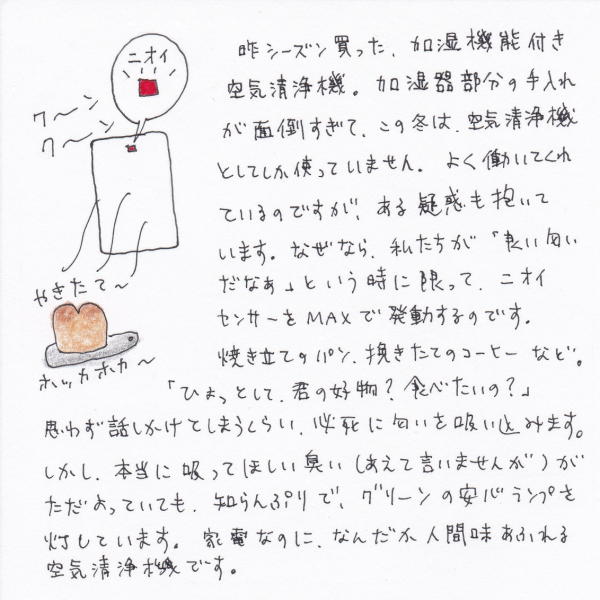 ニオイ
クーン
クーン
やきたて〜
ホッカホカ〜
昨シーズン買った、加湿機能付き
空気清浄機。加湿器部分の手入れ
が面倒すぎて、この冬は、空気清浄機
としてしか使っていません。よく働いてくれ
ているのですが、ある疑惑も抱いて
います。なぜなら、私たちが「良い匂い
だなぁ」という時に限って、ニオイ
センサーをMAXで発動するのです。
焼き立てのパン、挽きたてのコーヒーなど。
「ひょっとして、君の好物？食べたいの？」
思わず話しかけてしまうくらい、必死に匂いを吸い込みます。
しかし、本当に吸ってほしい臭い（あえて言いませんが）が
ただよっていても、知らんぷりで、グリーンの安心ランプを
灯しています。家電なのに、なんだか人間味あふれる
空気清浄機です。